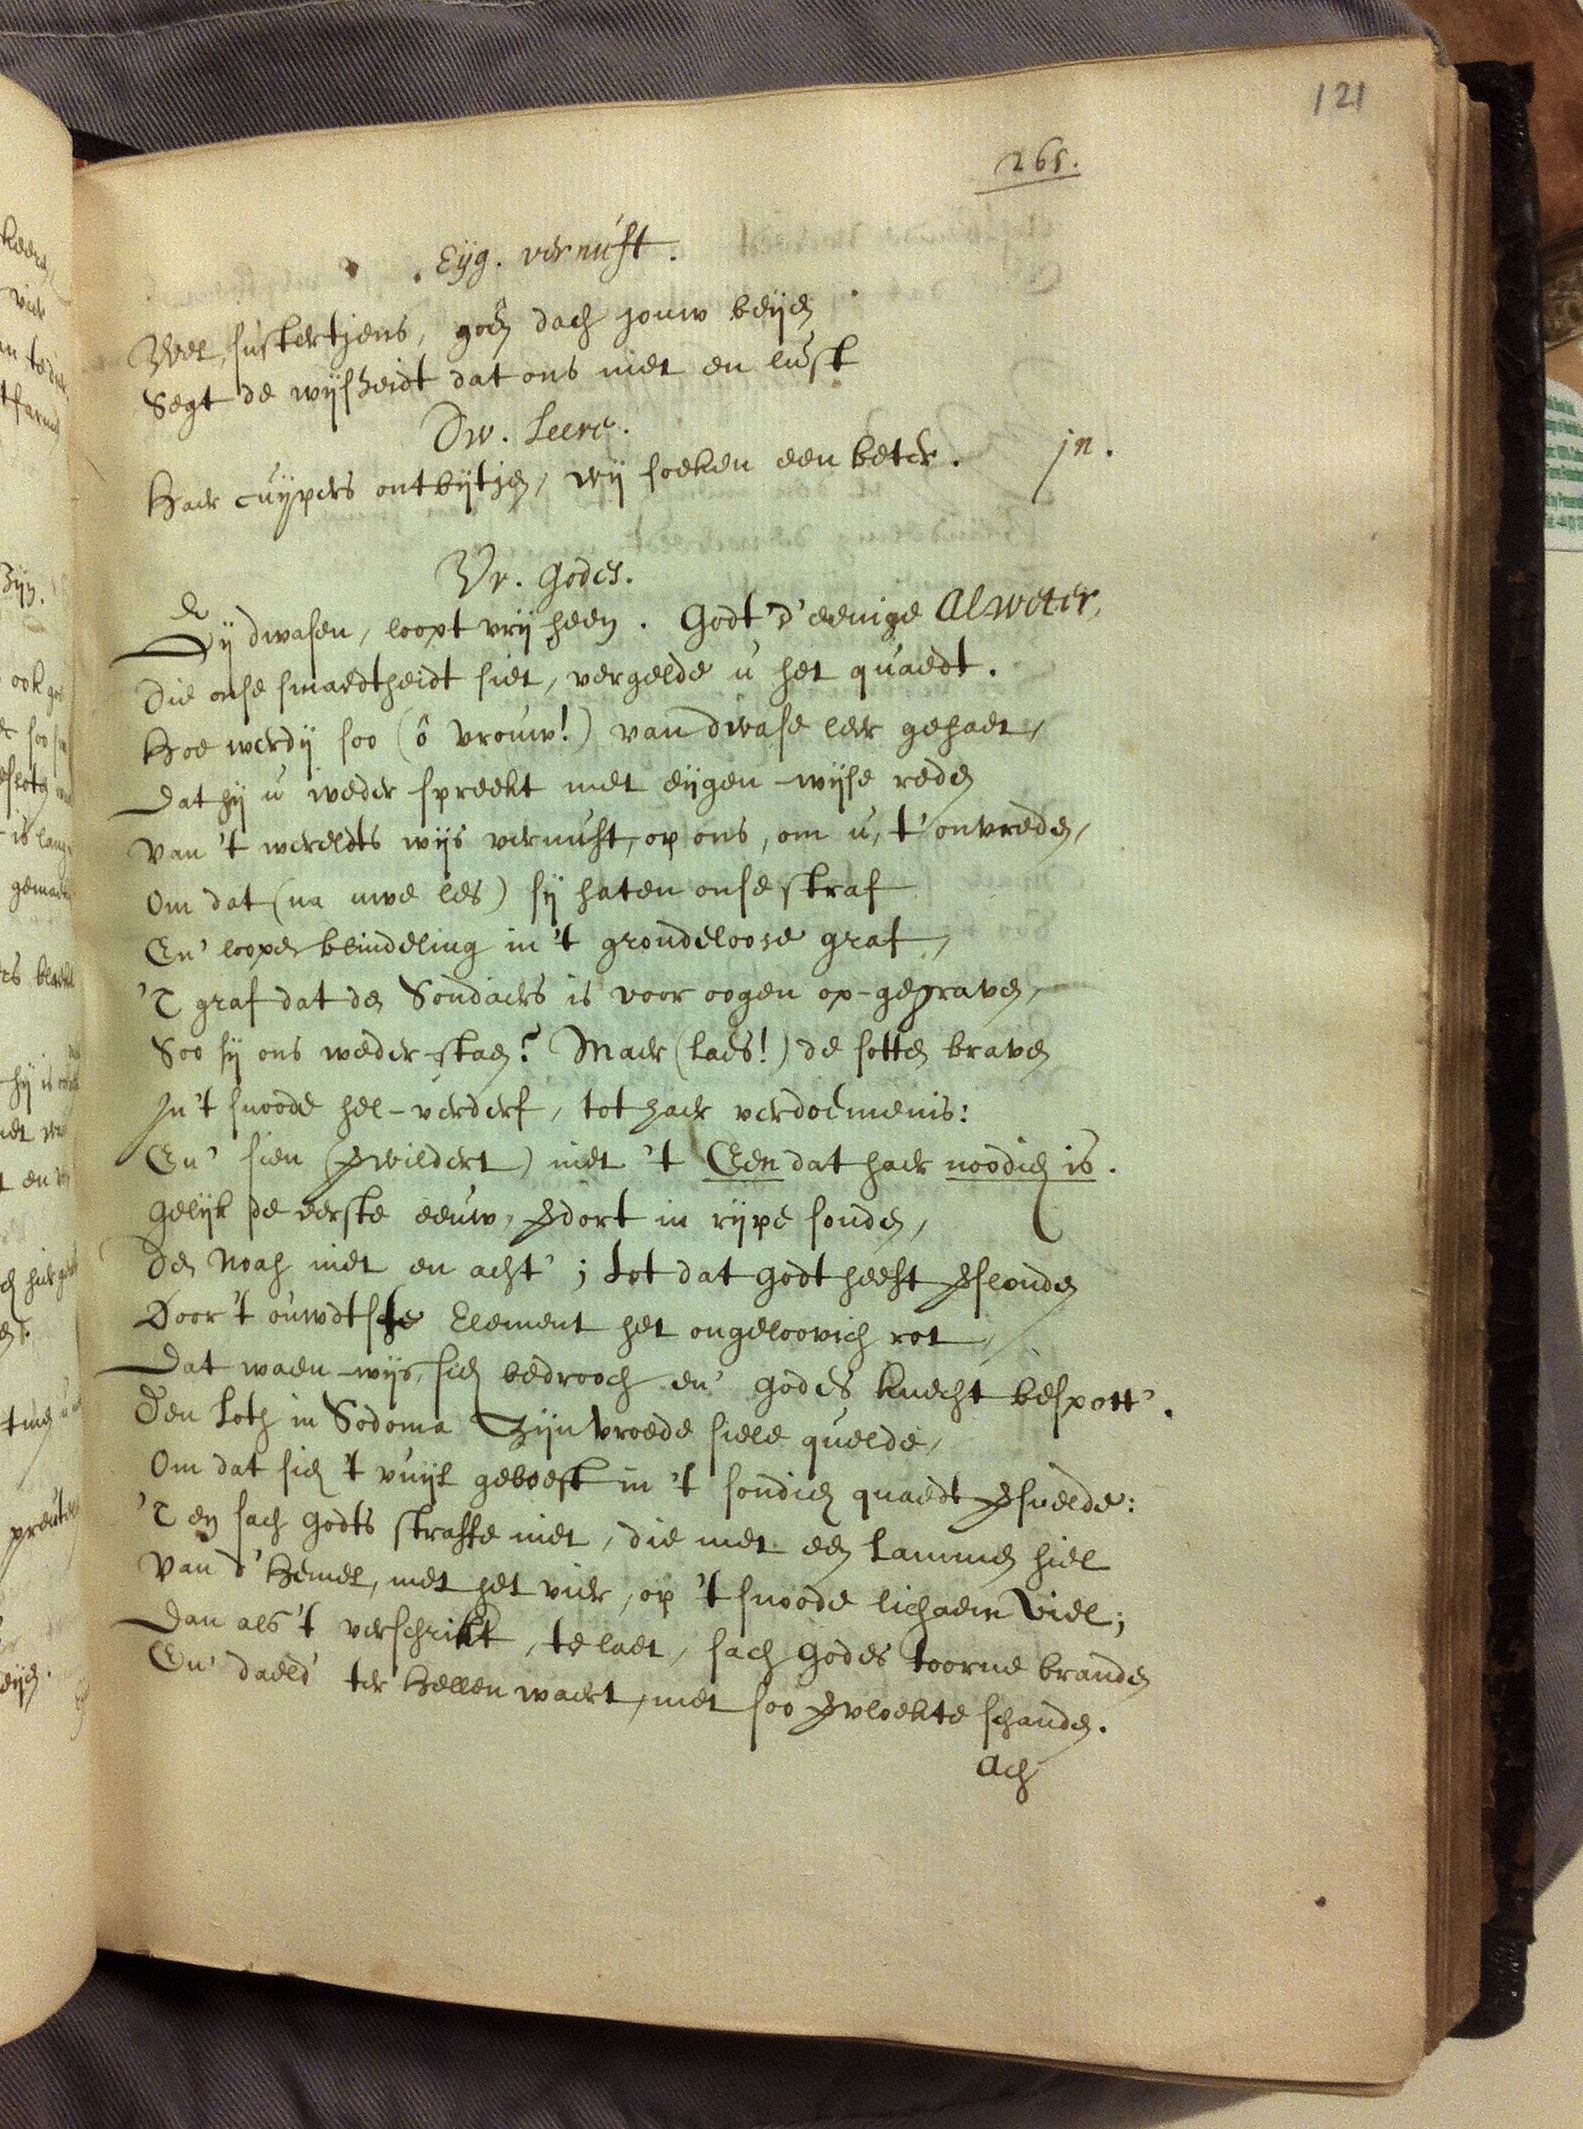 121
265.
Eijg. vernuft.
Wel, sustertjens, goẽn dach jouw beijẽ
Segt de wijsheidt dat ons niet en lust
Dw. Leere.
Haer cuijpers ontbijtjẽ, wij soeken een beter. in.
Vr. Godes.
Gij dwasen, loopt vrij heen. Godt d'eenige Alweter,
Die onse smaedtheidt siet, vergelde u het quaedt.
Hoe werdij soo (ô vrouw!) van dwase leer gehaet,
Dat hij u weder spreekt met eijgen-wijse redẽ
Van 't wereldts wijs vernuft, op ons, om u, t'onvredẽ,
Om dat (na uwe les) sij haten onse straf
En' loopẽ blindeling in 't grondeloose graf,
'T graf dat dẽ Sondaers is voor oogen op-gegravẽ,
Soo sij ons weder-staẽ? Maer (laes!) de sottẽ bravẽ
In 't snoode hel-verderf, tot haer verdoemenis:
En' sien (verwildert) niet 't Een dat haer noodich is.
Gelijk de eerste eeuw, verdort in rijpe sondẽ,
Dẽ Noah niet en acht'; tot dat Godt heeft verslondẽ
Door 't ouwdtste Element het ongeloovich rot,
Dat waen-wijs, sich bedrooch en' Godes knecht bespott'.
Den Loth in Sodoma Zijn vroede siele quelde,
Om dat sich 't vuijl geboest in 't sondich quaedt versnelde:
'T en sach Godts straffe niet, die met eẽ lammẽ hiel
Van d'Hemel, met het vier, op 't snoode lichaem viel;
Dan als 't verschrikt, te laet, sach Godes toorne brandẽ
En' daeld' ter Hellen waert, met soo vervloekte schandẽ.
Ach